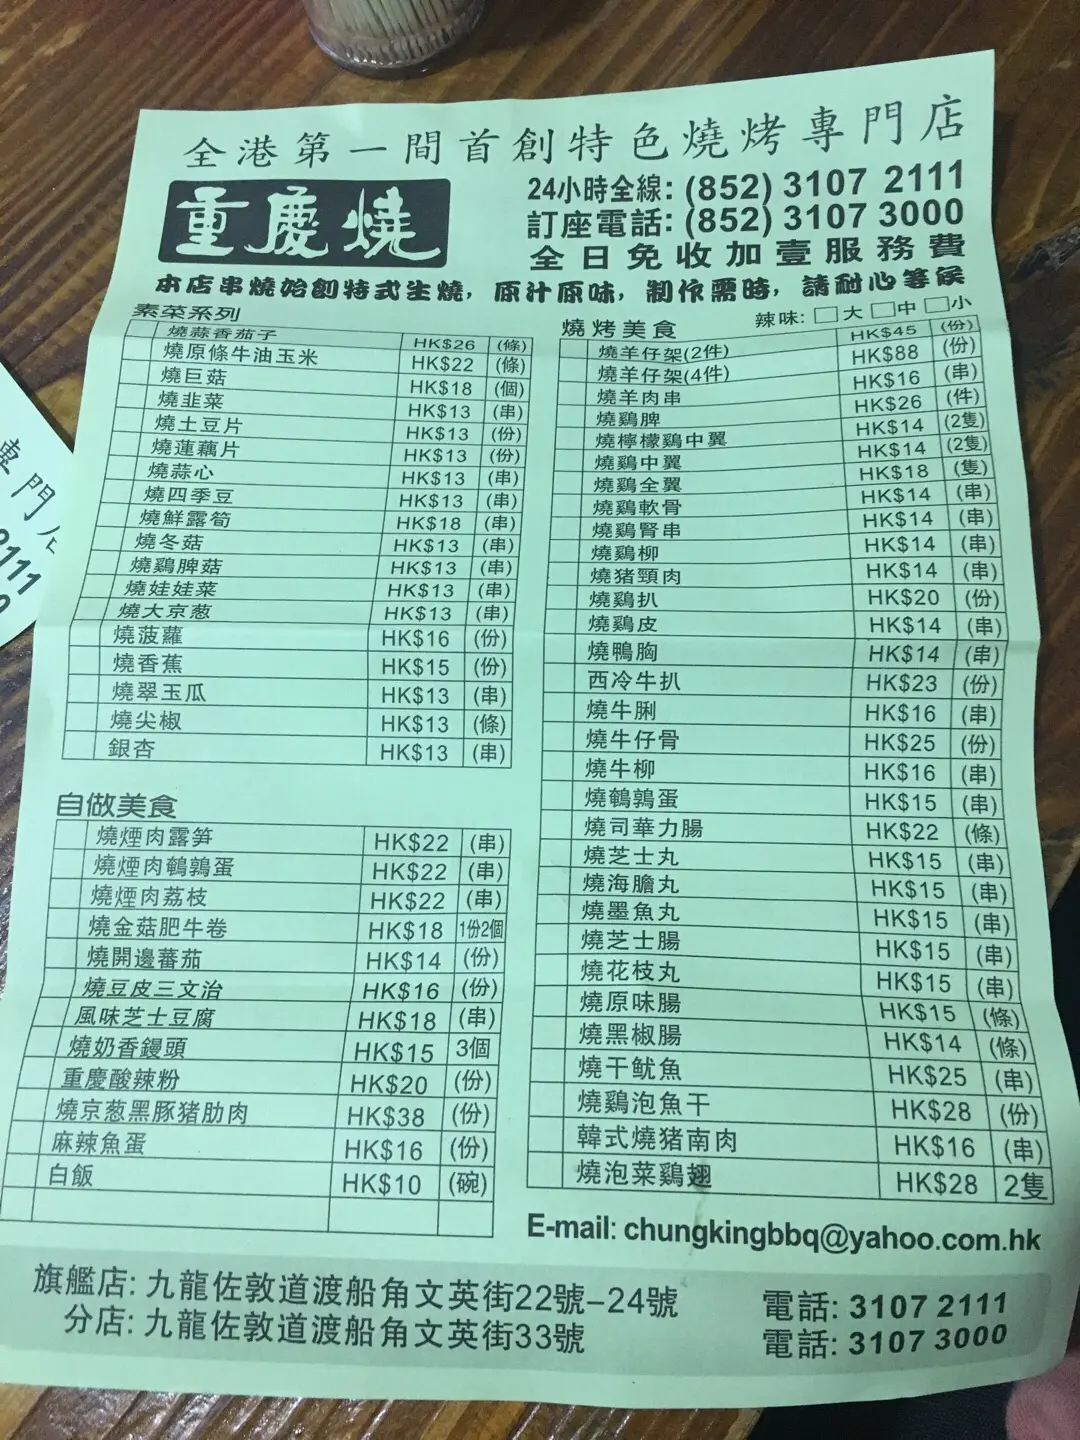 全港第一間首創特色燒烤專門店
重慶燒
24小時全線: (852) 3107 2111
訂座電話: (852) 3107 3000
全日免收加壹服務費
本店串燒始創特式生燒，原汁原味，制作需時，請耐心等候
素菜系列
燒蒜香茄子 HK$26 (條)
燒原條牛油玉米 HK$22 (條)
燒巨菇 HK$18 (個)
燒韭菜 HK$13 (串)
燒土豆片 HK$13 (份)
燒蓮藕片 HK$13 (份)
燒蒜心 HK$13 (串)
燒四季豆 HK$13 (串)
燒鮮露筍 HK$18 (串)
燒冬菇 HK$13 (串)
燒鷄脾菇 HK$13 (串)
燒娃娃菜 HK$13 (串)
燒大京葱 HK$13 (串)
燒菠蘿 HK$16 (份)
燒香蕉 HK$15 (份)
燒翠玉瓜 HK$13 (串)
燒尖椒 HK$13 (條)
銀杏 HK$13 (串)
自做美食
燒煙肉露笋 HK$22 (串)
燒煙肉鵪鶉蛋 HK$22 (串)
燒煙肉荔枝 HK$22 (串)
燒金菇肥牛卷 HK$18 1份2個
燒開邊蕃茄 HK$14 (份)
燒豆皮三文治 HK$16 (份)
風味芝士豆腐 HK$18 (串)
燒奶香饅頭 HK$15 3個
重慶酸辣粉 HK$20 (份)
燒京葱黑豚猪肋肉 HK$38 (份)
麻辣魚蛋 HK$16 (份)
白飯 HK$10 (碗)
燒烤美食 辣味: 大 中 小
燒羊仔架(2件) HK$45 (份)
燒羊仔架(4件) HK$88 (份)
燒羊肉串 HK$16 (串)
燒鷄脾 HK$26 (件)
燒檸檬鷄中翼 HK$14 (2隻)
燒鷄中翼 HK$14 (2隻)
燒鷄全翼 HK$18 (隻)
燒鷄軟骨 HK$14 (串)
燒鷄腎串 HK$14 (串)
燒鷄柳 HK$14 (串)
燒猪頸肉 HK$14 (串)
燒鷄扒 HK$20 (份)
燒鷄皮 HK$14 (串)
燒鴨胸 HK$14 (串)
西冷牛扒 HK$23 (份)
燒牛脷 HK$16 (串)
燒牛仔骨 HK$25 (份)
燒牛柳 HK$16 (串)
燒鵪鶉蛋 HK$15 (串)
燒司華力腸 HK$22 (條)
燒芝士丸 HK$15 (串)
燒海膽丸 HK$15 (串)
燒墨魚丸 HK$15 (串)
燒芝士腸 HK$15 (串)
燒花枝丸 HK$15 (串)
燒原味腸 HK$15 (條)
燒黑椒腸 HK$14 (條)
燒干魷魚 HK$25 (串)
燒鷄泡魚干 HK$28 (份)
韓式燒猪南肉 HK$16 (串)
燒泡菜鷄翅 HK$28 2隻
E-mail: chungkingbbq@yahoo.com.hk
旗艦店: 九龍佐敦道渡船角文英街22號-24號 電話: 3107 2111
分店: 九龍佐敦道渡船角文英街33號 電話: 3107 3000
專門店
2111